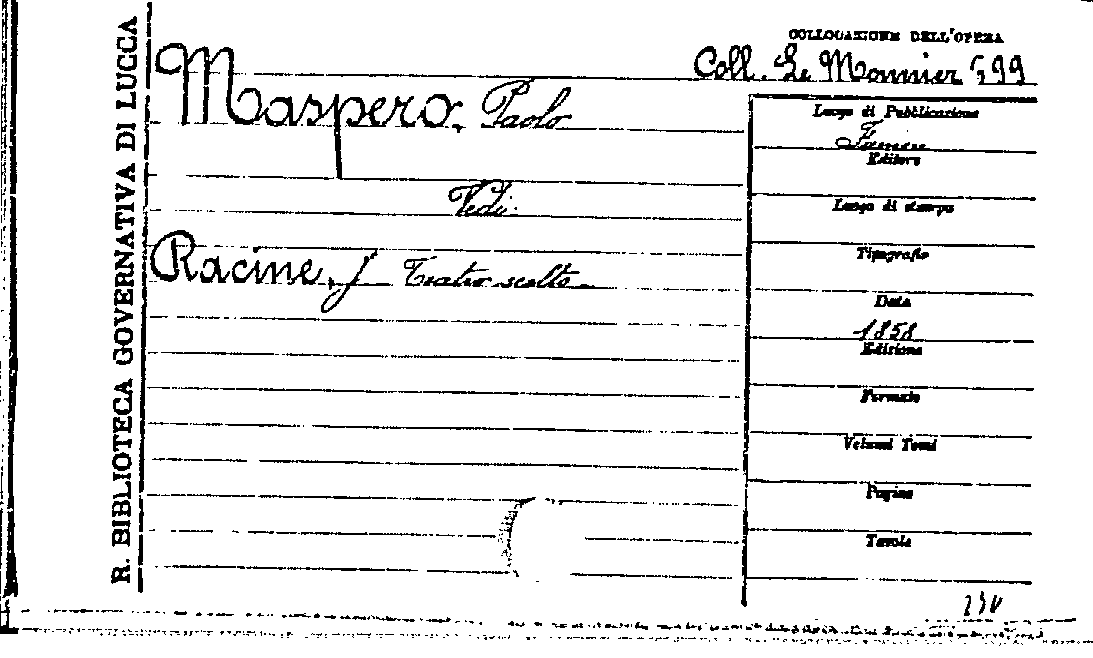 R. BIBLIOTECA GOVERNATIVA DI LUCCA
COLLOCAZIONE DELL'OPERA
Coll. Le Monnier 599
Maspero, Paolo
Vedi:
Racine, J Teatro scelto
Luogo di Pubblicazione
Firenze
Editore
Luogo di stampa
Tipografia
Data
1858
Edizione
Formato
Volumi Tomi
Pagine
Tavole